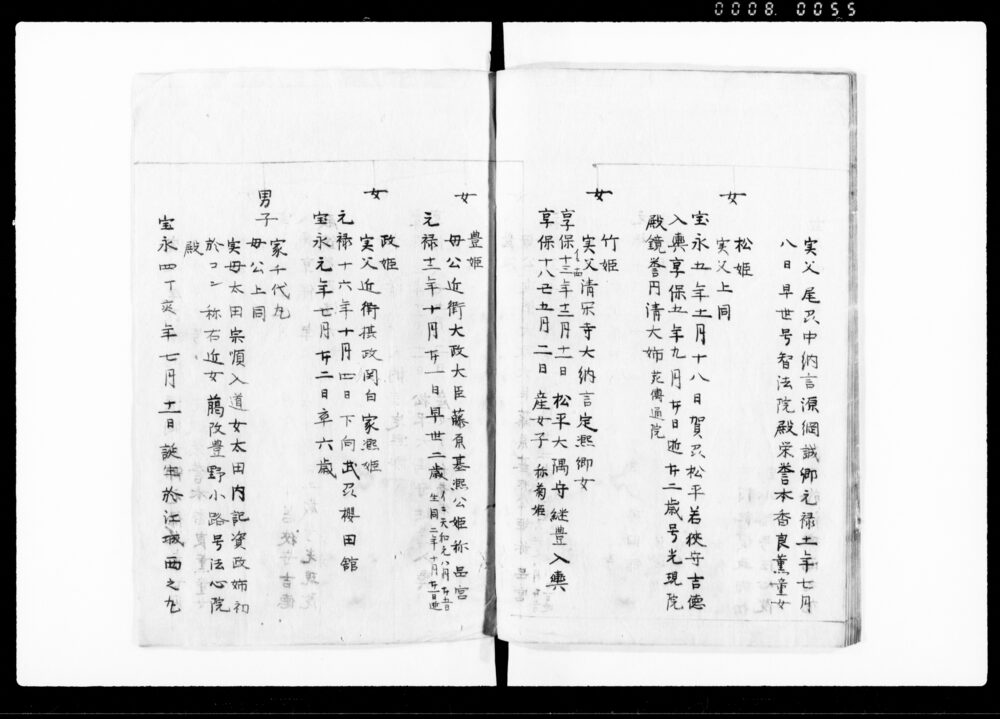 0008. 0055
実父尾刕中納言源綱誠卿元禄十一年七月
八日早世号智法院殿栄誉本香良薫童女
女
松姫
実父上同
宝永五年十一月十八日賀刕松平若狭守吉徳
入輿享保五年九月廿日逝廿二歳号光現院
殿鏡誉円清大姉 葬傳通院
女
竹姫
実父清閑寺大納言定熙卿女
享保十三年十二月十一日 松平大隅守継豊入輿
享保十八 五月二日 産女子 称菊姫
女
豊姫
母公近衛大政大臣藤原基熙公姫称品宮
元禄十二年十月廿一日早世二歳 天和元八月廿五日
生同二年十月廿一日逝
女
政姫
実父近衛摂政関白家熙姫
元禄十六年十月四日下向武刕櫻田館
宝永元年七月廿二日卒六歳
男子
家千代丸
母公上同
実母太田宗順入道女太田内記資政姉初
於コン称右近女 改豊野小路号法心院
殿
宝永四丁亥年七月十一日誕生於江城西之丸